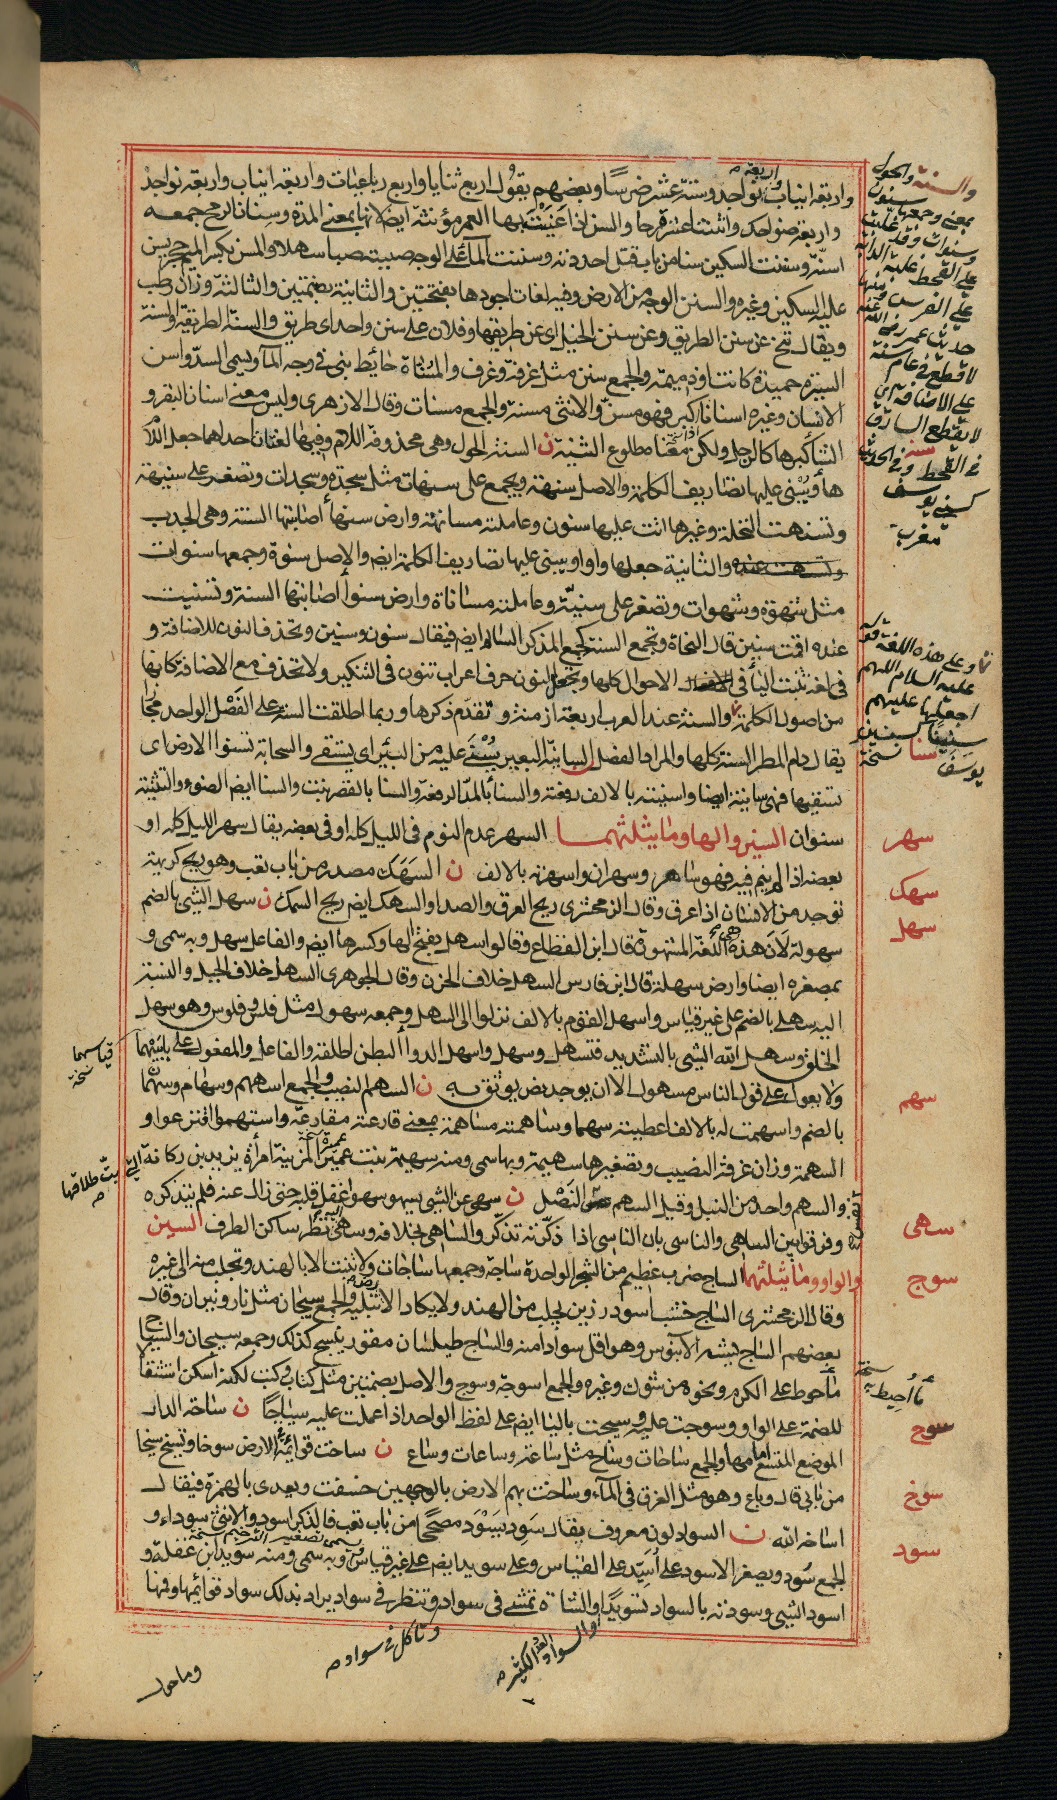 واربعة انياب نواجد وستة عشر ضرسا وبعضهم يقول اربع ثنايا واربع رباعيات واربعة انياب واربعة نواجذ
واربعة ضواحك واثنتا عشرة رحا والسن اذا عنيت بها العمر مؤنثة ايضا لانها بمعنى المدة وسنان الرمح جمعه
اسنة وسننت السكين سنا من باب قتل احددته وسننت الماء على الوجه صببته صبا سهلا والمسن بكسر الميم حجر يسن
عليه السكين وغيره والسنن الوجه من الارض وفيه لغات اجودها بفتحتين والثانية بضمتين والثالثة وزان رطب
ويقال تنح عن سنن الطريق وعن سنن الخيل اى عن طريقها وفلان على سنن واحد اى طريق والسنة الطريقة والسنة
السيرة حميدة كانت او ذميمة والجمع سنن مثل غرفة وغرف والمسناة حايط يبنى في وجه الماء ويسمى السد واسن
الانسان وغيره اسنانا كبر فهو مسن والانثى مسنة والجمع مسنات وقال الازهرى وليس معنى اسنان البقر و
الشاة كبرها كالرجل ولكن معناه طلوع الثنية ن السنة الحول وهي محذوفة اللام وفيها لغتان احداهما جعل اللام
هاء ويبنى عليها تصاريف الكلمة والاصل سنهة ويجمع على سنهات مثل سجدة وسجدات وتصغر على سنيهة
وتسنهت النخلة وغيرها اتت عليها سنون وعاملته مسانهة وارض سنهاء اصابتها السنة وهي الجدب
والثانية جعلها واوا ويبنى عليها تصاريف الكلمة ايضا والاصل سنوة وجمعها سنوات
مثل شهوة وشهوات وتصغر على سنية وعاملته مساناة وارض سنواء اصابتها السنة وتسنيت
عنده اقمت سنين قال النحاة وتجمع السنة كجمع المذكر السالم ايضا فيقال سنون وسنين وتحذف النون للاضافة و
في لغة تثبت الياء في الاحوال كلها وتجعل النون حرف اعراب تنون في التنكير ولا تحذف مع الاضافة كانها
من اصول الكلمة والسنة عند العرب اربعة ازمنة وتقدم ذكرها وربما اطلقت السنة على الفصل الواحد مجازا
يقال دام المطر السنة كلها والمراد الفصل السانية البعير يسنى عليه من البئر اى يستقى والسحابة تسنو الارض اى
تسقيها فهي سانية ايضا واسنيته بالالف رفعته والسناء بالمد الرفعة والسنا بالقصر نبت والسنا ايضا الضوء والتثنية
سنوان السين والهاء وما يثلثهما السهر عدم النوم في الليل كله او في بعضه يقال سهر الليل كله او
بعضه اذا لم ينم فيه فهو ساهر وسهران واسهرته بالالف ن السهك مصدر من باب تعب وهو ريح كريهة
توجد من الانسان اذا عرق وقال الزمخشرى ريح العرق والصدا والسهك ايضا ريح السمك ن سهل الشى بالضم
سهولة لان هذه هي اللغة المشهورة قال ابن القطاع وقالوا سهل بفتح الهاء وكسرها ايضا والفاعل سهل وبه سمى و
بمصغره ايضا وارض سهلة قال ابن فارس السهل خلاف الحزن وقال الجوهرى السهل خلاف الجبل والنسبة
اليه سهلى بالضم على غير قياس واسهل القوم بالالف نزلوا الى السهل وجمعه سهول مثل فلس وفلوس وهو سهل
الخلق وسهل الله الشى بالتشديد فتسهل وسهل واسهل الدواء البطن اطلقه والفاعل والمفعول على بابيهما
ولا يعول على قول الناس مسهول الا ان يوجد نص يوثق به ن السهم النصيب والجمع اسهم وسهام وسهمان
بالضم واسهمت له بالالف اعطيته سهما وساهمته مساهمة بمعنى قارعته مقارعة واستهموا اقترعوا و
السهمة وزان غرفة النصيب وتصغيرها سهيمة وبها سمى ومنه سهيمة بنت عمير المزنية امرأة يزيد بن ركانة
والسهم واحد من النبل وقيل السهم النصل ن سهى عن الشى يسهو سهوا غفل قلبه حتى زال عنه فلم يتذكره
وفرقوا بين الساهى والناسى بان الناسى اذا ذكرته تذكر والساهى بخلافه وسهى اليه نظر ساكن الطرف السين
والواو وما يثلثهما الساج ضرب عظيم من الشجر الواحدة ساجة وجمعها ساجات ولا تنبت الا بالهند وتجلب منها الى غيره
وقال الزمخشرى الساج خشب اسود رزين يجلب من الهند ولا يكاد الارض تبليه والجمع سيجان مثل نار ونيران وقال
بعضهم الساج يشبه الابنوس وهو اقل سوادا منه والساج طيلسان مقور ينسج كذلك وجمعه سيجان والسياج
ما احوط على الكرم ونحوه من شوك وغيره والجمع اسوجة وسوج والاصل بضمتين مثل كتاب وكتب لكنه اسكن استثقالا
للضمة على الواو وسوجت عليه وسيجت بالياء ايضا على لفظ الواحد اذا عملت عليه سياجا ن ساحة الدار
الموضع المتسع امامها والجمع ساحات وساح مثل ساعة وساعات وساع ن ساخت قوائمه في الارض سوخا وتسيخ سيخا
من بابي قال وباع وهو مثل الغرق في الماء وساخت بهم الارض بالوجهين خسفت ويعدى بالهمزة فيقال
اساخه الله ن السواد لون معروف يقال سود يسود مصححا من باب تعب فالذكر اسود والانثى سوداء و
الجمع سود ويصغر الاسود على اسيد على القياس وعلى سويد ايضا على غير قياس وبه سمى ومنه سويد ابن غفلة و
اسود الشيى وسودته بالسواد تسويدا والشاة تمشى في سواد وتنظر في سواد يراد بذلك سواد قوائمها وفمها
والسنة والحول
بمعنى وجمعها سنون
وسنوات وقد غلبت
على القحط غلبة الدابة
على الفرس ومنها
حديث عمر رضى الله عنه
لا قطع في عام سنة
على الاضافة اى
لا يقطع السارق
في القحط وفي الحديث
كسنى يوسف
مغرب
وعلى هذه اللغة قوله
عليه السلام اللهم
اجعلها عليهم
سنينا كسنين
يوسف نسخة
سنا
سهر
سهك
سهل
سهم
سهى
سوج
سوح
سوخ
سود
قياسهما
نسخة
التي بت طلاقها
ما احيط به نسخة
وتأكل في سواد
والسواد العدد الكثير
وما حول